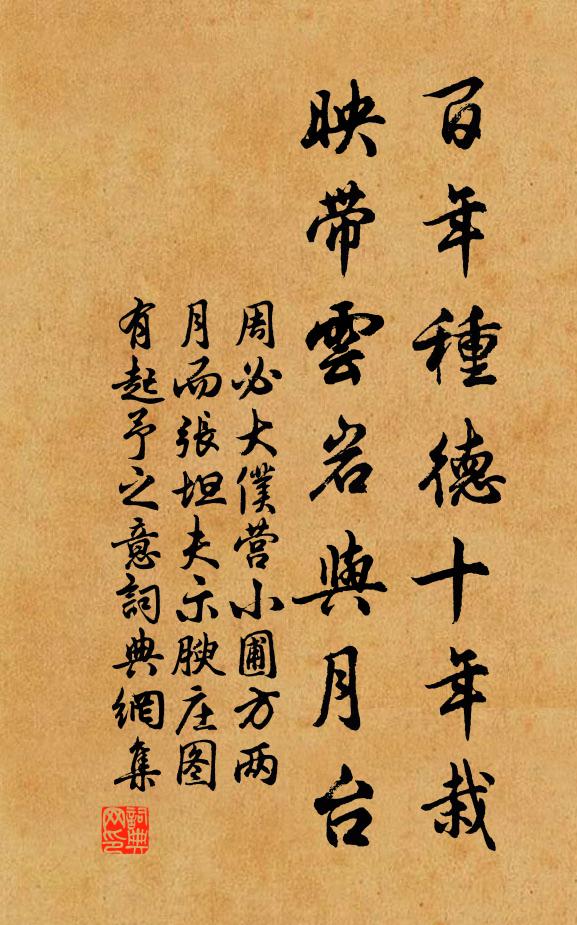 百年種德十年栽
映带雲岩與月台
周必大僕营小圃方两
月而張坦夫示腴庄图
有起予之意詞典網集
詞典
网印